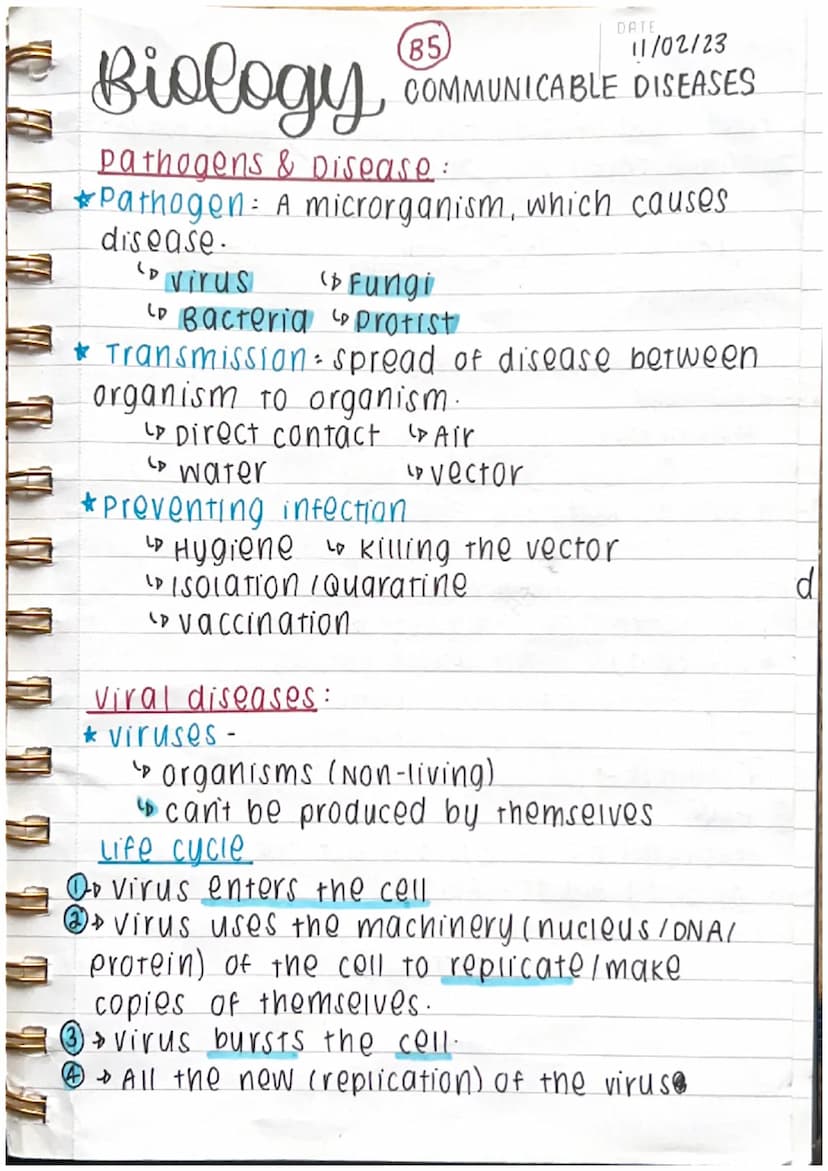 Biology
B5
DATE
11/02/23
COMMUNICABLE DISEASES
Pathogens & Disease:
★Pathogen: A microrganism, which causes
disease.
↳ Virus ↳ Fungi
↳ Bacteria ↳ Protist
★ Transmission: spread of disease between
organism to organism.
↳ Direct contact ↳ Air
↳ Water ↳ vector
★Preventing infection
↳ Hygiene ↳ Killing the vector
↳ Isolation / Quaratine
d
↳ vaccination
Viral diseases:
★ viruses -
↳ organisms (Non-living)
↳ can't be produced by themselves
Life cycle
①→ Virus enters the cell
②→ Virus uses the machinery (nucleus / DNA/
protein) of the cell to replicate / make
copies of themselves.
③→ Virus bursts the cell.
④ → All the new (replication) of the virus